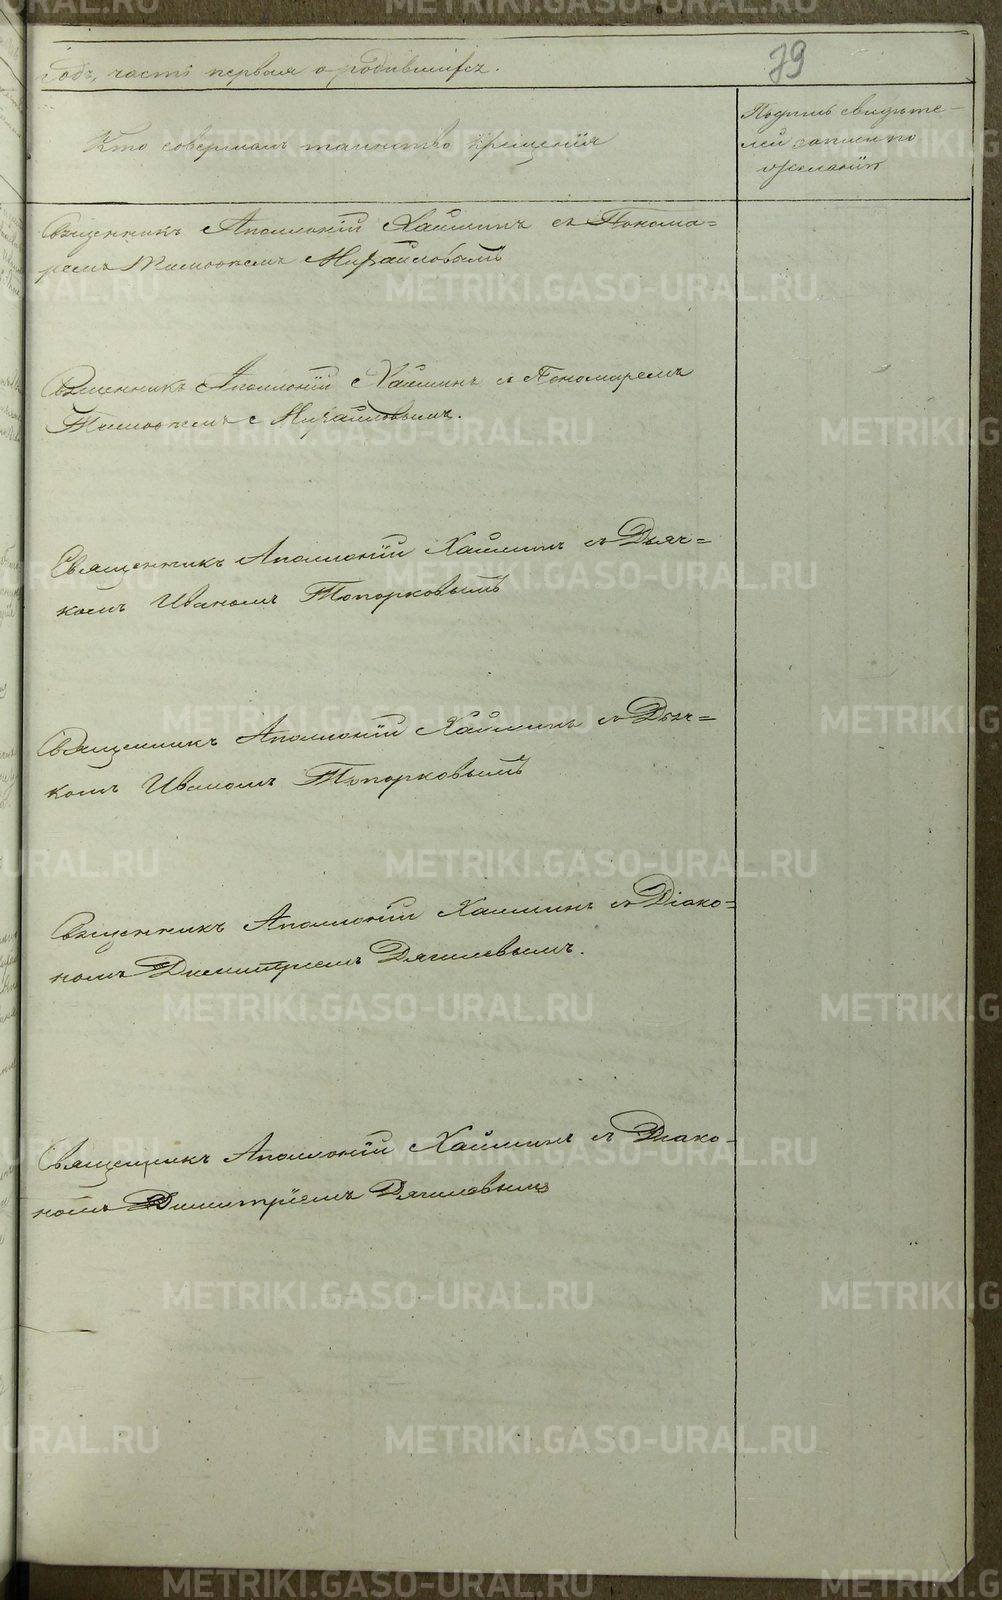 годъ, часть первая о родившихся.
79
Кто совершалъ таинство крещенія
Подпись свидѣте-
лей записи по
желанію
Священникъ Аполлоній Хаймин съ Понома=
ремъ Тимофеемъ Михайловымъ
Священникъ Аполлоній Хаймин съ Пономаремъ
Тимофеемъ Михайловымъ.
Священникъ Аполлоній Хаймин съ Дьяч=
комъ Иваномъ Топорковымъ
Священникъ Аполлоній Хаймин съ Дьяч=
комъ Иваномъ Топорковымъ
Священникъ Аполлоній Хаймин съ Діако=
номъ Димитріемъ Дягилевымъ.
Священникъ Аполлоній Хаймин съ Діако-
номъ Димитріемъ Дягилевымъ
METRIKI.GASO-URAL.RU